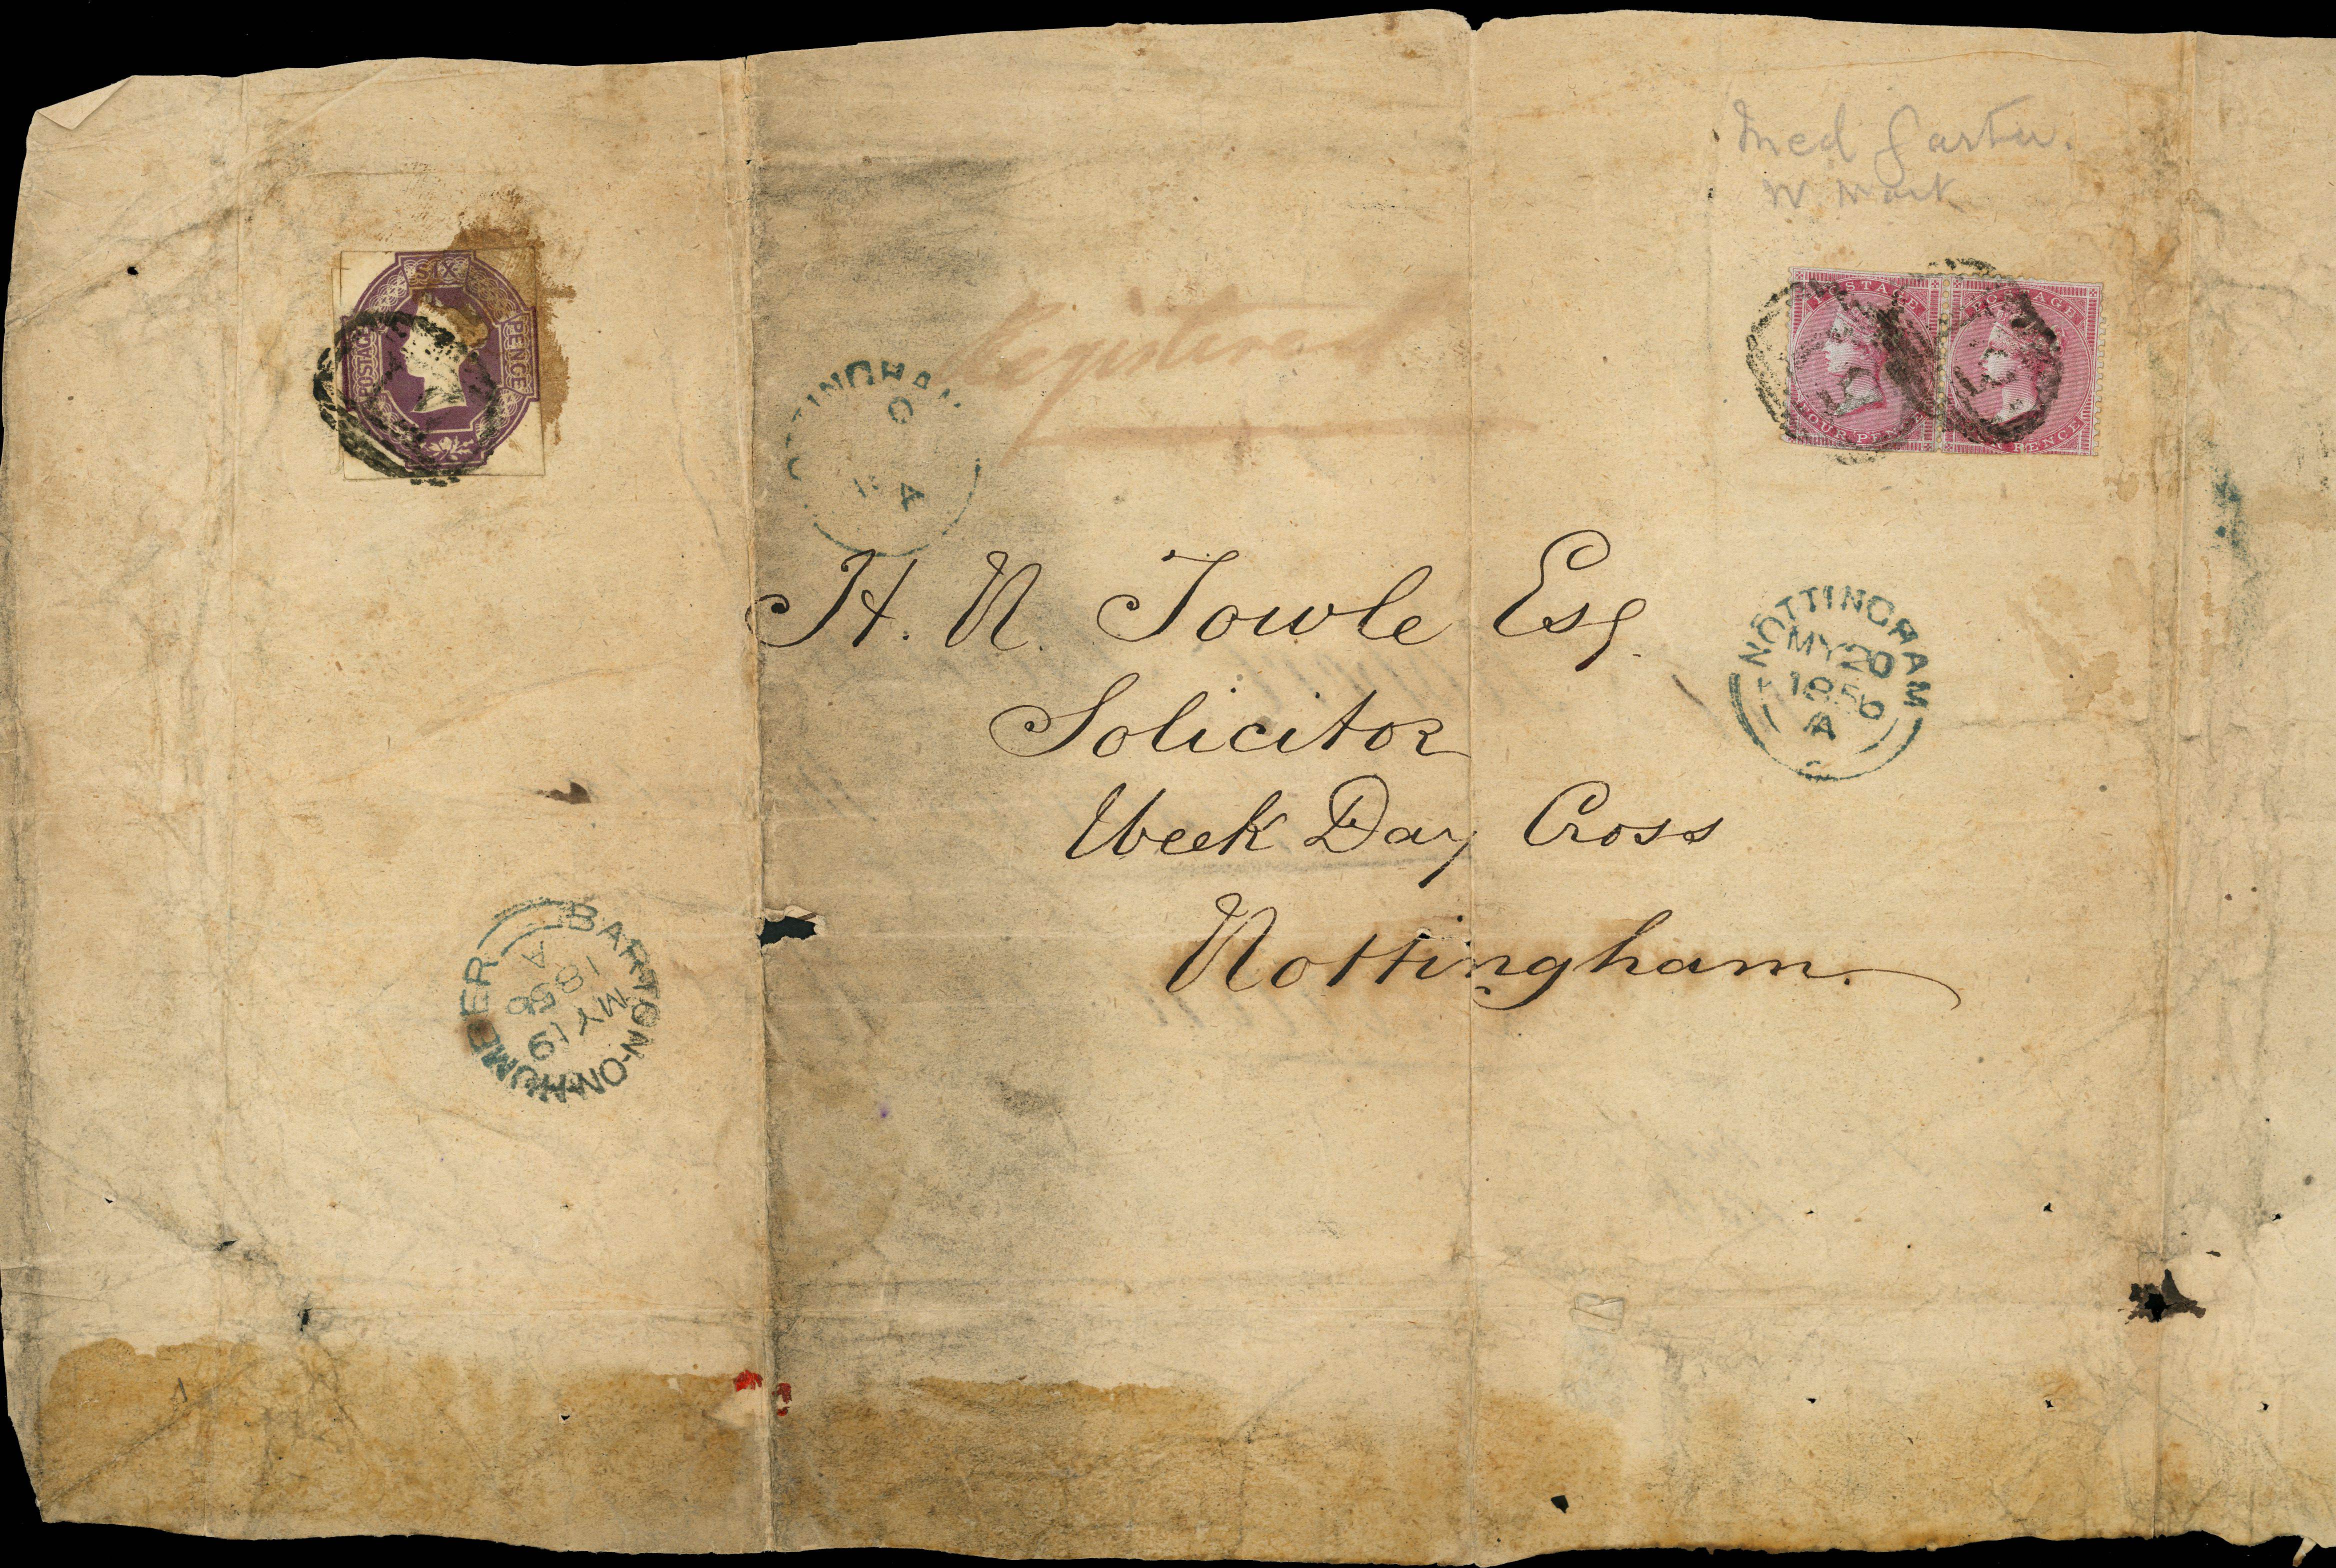 Med Garter.
W. Mark
SIX
POSTAGE
PENCE
POSTAGE
FOUR PENCE
POSTAGE
PENCE
Registered
NOTTINGHAM
C
A
H. N. Towle Esq.
Solicitor
Week Day Cross
Nottingham.
NOTTINGHAM
MY 20
1856
A
BARTON-ON-HUMBER
A
1856
MY 19